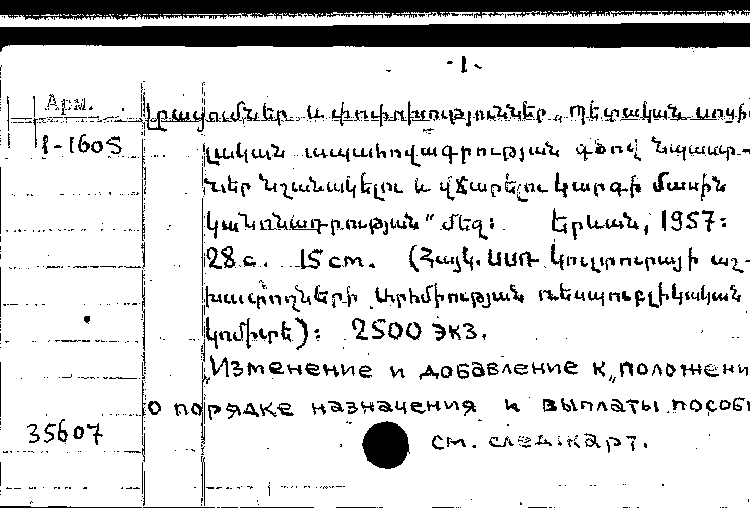 -1-
Арм.
1-1605
Լրացումներ և փոփոխություններ „Պետական սոցի
լական ապահովագրության գծով նպաստ-
ներ նշանակելու և վճարելու կարգի մասին
կանոնադրության" մեջ: Երևան, 1957:
28 с. 15 cm. (Հայկ. ՍՍՌ կուլտուրայի աշ-
խատողների արհմիության ռեսպուբլիկական
կոմիտե): 2500 экз.
„Изменение и добавление к „положени
о порядке назначения и выплаты пособи
35607
см. след. карт.